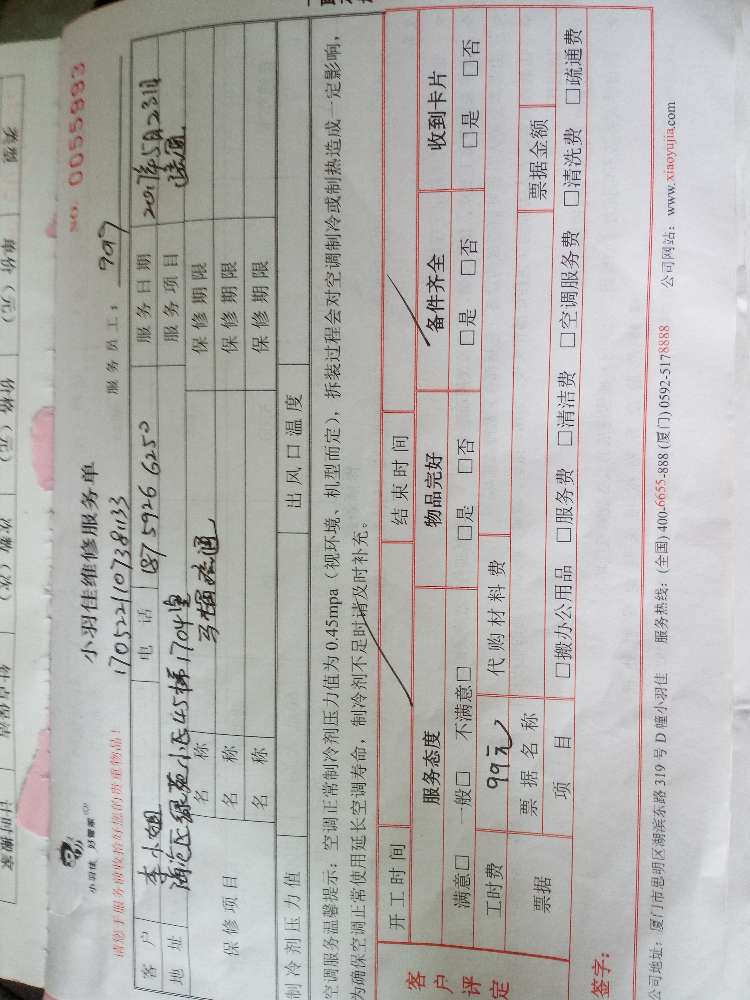 小羽佳 好管家
小羽佳维修服务单
NO. 0055993
170522110738033
服务员工： 997
客 户 李小姐 电 话 187 5926 6250 服务日期 2017年5月23日
地 址 海沧区绿苑小区45梯1704室 服务项目 疏通
保修项目
名 称 马桶疏通 保修期限
名 称 保修期限
名 称 保修期限
制冷剂压力值 出风口温度
空调服务温馨提示：空调正常制冷剂压力值为 0.45mpa（视环境、机型而定），拆装过程会对空调制冷或制热造成一定影响，
为确保空调正常使用延长空调寿命，制冷剂不足时请及时补充。
客户评定
开工时间 结束时间
服务态度 物品完好 备件齐全 收到卡片
满意□ 一般□ 不满意□ □是 □否 □是 □否 □是 □否
工时费 99元 代购材料费
票据 票据名称 票据金额
项 目 □搬办公用品 □服务费 □清洁费 □空调服务费 □清洗费 □疏通费
签字：
公司地址：厦门市思明区湖滨东路 319 号 D 幢小羽佳 服务热线：(全国) 400-6655-888 (厦门) 0592-5178888 公司网站：www.xiaoyujia.com